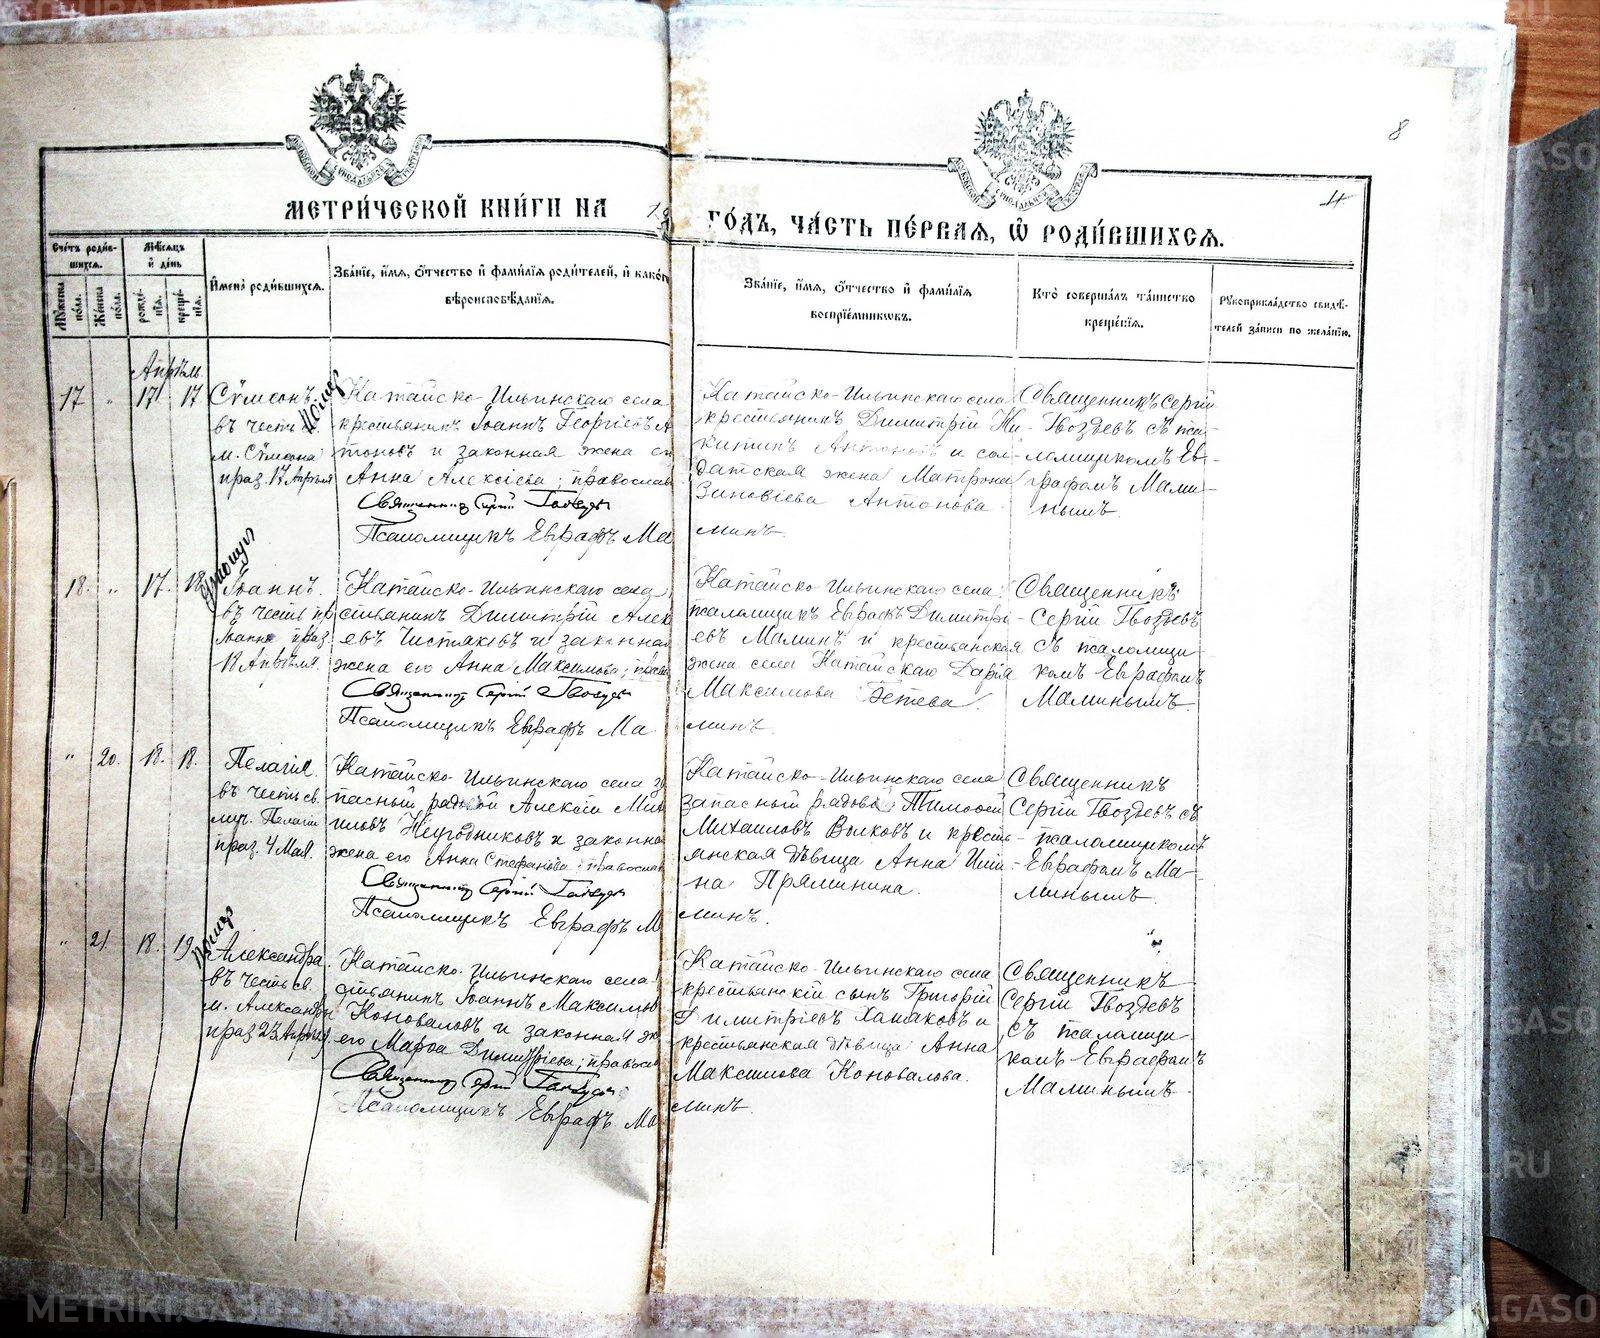 8
4
МЕТРИ́ЧЕСКОЙ КНИ́ГИ НА 19
ГО́ДЪ, ЧА́СТЬ ПЕ́РВАЯ, Ѡ҆ РОДИ́ВШИХСЯ.
Сче́тъ роди́в-
шихся.
Мѣ́сяцъ
и҆ де́нь
Му́жеска
по́ла.
Же́нска
по́ла.
рожде́-
нїя.
креще́-
нїя.
И҆мена̀ роди́вшихся.
Зва́нїе, и҆́мя, ѻ҆́тчество и҆ фами́лїя роди́телей, и҆ како́гѡ
вѣроисповѣ́данїя.
Зва́нїе, и҆́мя, ѻ҆́тчество и҆ фами́лїя
воспрїе́мникѡвъ.
Кто̀ соверша́лъ та́инство
креще́нїя.
Рꙋкоприкла́дство свидѣ́-
телей за́писи по жела́нїю.
Апрѣль
17 " 17 17
Сѷмеонъ.
въ честь св.
м. Сѷмеона
праз. 17 Апрѣля
Катайско-Ильинскаго села
крестьянинъ Іоаннъ Георгіевъ А
тоновъ и законная жена
Анна Алексіева; православ
Священникъ Сергій Гвоздевъ
Псаломщикъ Евграфъ Ма
Катайско-Ильинскаго села
крестьянинъ Димитрій Ни-
китинъ Антоновъ и сол-
датская жена Матрона
Зиновіева Антонова
минъ.
Священникъ Сергій
Гвоздевъ съ пса-
ломщикомъ Ев-
графомъ Мами-
нымъ.
18. " 17. 18.
Іоаннъ.
въ честь пр
Іоанна праз.
18 Апрѣля.
Катайско-Ильинскаго села
стьянинъ Димитрій Алек
евъ Чистяковъ и законная
жена его Анна Максимова; право
Священникъ Сергій Гвоздевъ
Псаломщикъ Евграфъ Ма
Катайско-Ильинскаго села:
псаломщикъ Евграфъ Димитрі-
евъ Маминъ и крестьянская
жена села Катайскаго Дарія
Максимова
минъ.
Священникъ
Сергій Гвоздевъ
съ псаломщи-
комъ Евграфомъ
Маминымъ.
" 20. 18. 18.
Пелагія.
въ честь св.
муч. Пелагіи
праз. 4 Мая.
Катайско-Ильинскаго села за
пасный рядовой Алексій Мих
иловъ Неугодниковъ и законна
жена его Анна Стефанова; православ
Священникъ Сергій Гвоздевъ
Псаломщикъ Евграфъ М
Катайско-Ильинскаго села
запасный рядовой Тимоѳей
Михаиловъ Волковъ и кресть-
янская дѣвица Анна
на Прямини­на.
минъ.
Священникъ
Сергій Гвоздевъ съ
псаломщикомъ
Евграфомъ Ма-
минымъ.
" 21. 18. 19.
Александра.
въ честь св.
м. Александры
праз. 23 Апрѣля.
Катайско-Ильинскаго села
стьянинъ Іоаннъ Максимо
Коноваловъ и законная же
его Марѳа Димитріева; правосла
Священникъ Сергій Гвоздевъ
Псаломщикъ Евграфъ Ма
Катайско-Ильинскаго села
крестьянскій сынъ Григорій
Димитріевъ и
крестьянская дѣвица Анна
Максимова Коновалова.
минъ.
Священникъ
Сергій Гвоздевъ
съ псаломщи-
комъ Евграфомъ
Маминымъ.
METRIKI.GASO-URAL.RU